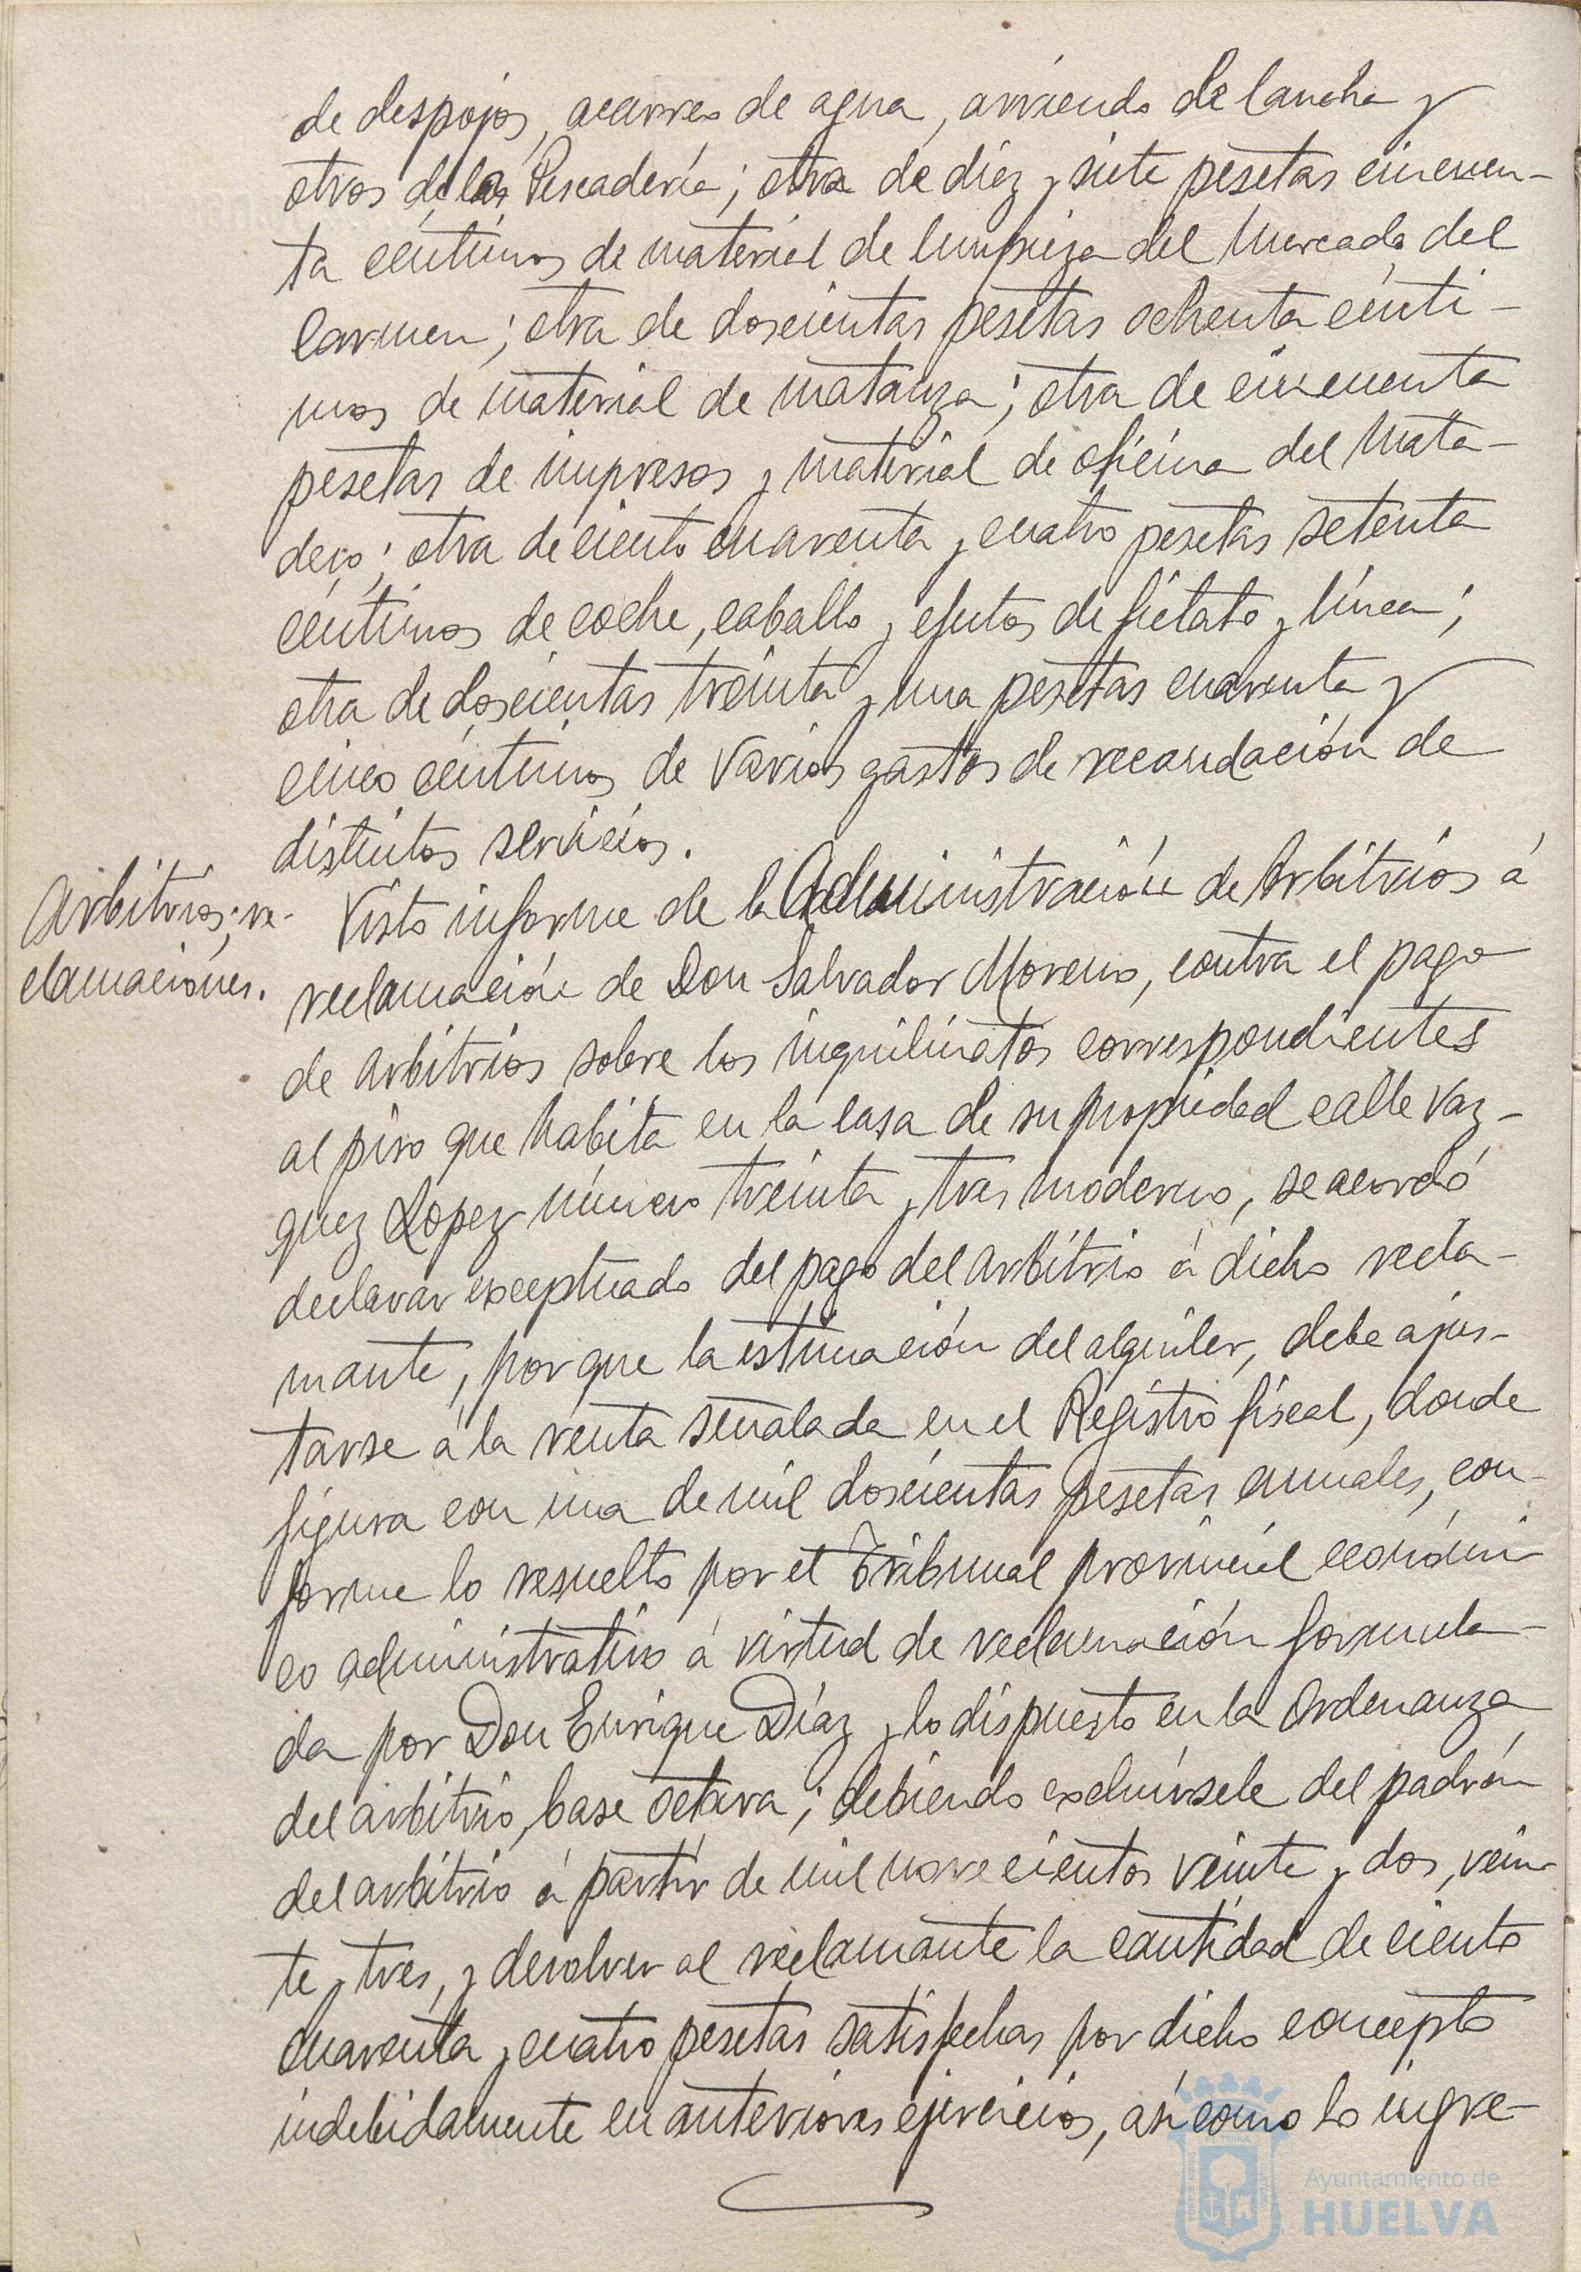 de despojos, acarreo de agua, arriendo de lancha y
otros de la Pescadería; otra de diez y siete pesetas cincuen-
ta céntimos de material de limpieza del Mercado del
Carmen; otra de doscientas pesetas ochenta cénti-
mos de material de matanza; otra de cincuenta
pesetas de impresos y material de oficina del Mata-
dero; otra de ciento cuarenta y cuatro pesetas setenta
céntimos de coche, caballo y efectos de fielato y línea;
otra de doscientas treinta y una pesetas cuarenta y
cinco céntimos de varios gastos de recaudación de
distintos servicios.
Arbitrios; re-
clamaciones.
Visto informe de la Administración de Arbitrios á
reclamación de Don Salvador Moreno, contra el pago
de arbitrios sobre los inquilinatos correspondientes
al piso que habita en la casa de su propiedad calle Vaz-
quez López número treinta y tres moderno, se acordó
declarar exceptuado del pago del arbitrio á dicho recla-
mante, por que la estimación del alquiler, debe ajus-
tarse á la renta señalada en el Registro fiscal, donde
figura con una de mil doscientas pesetas anuales, con-
forme lo resuelto por el Tribunal provincial económi-
co administrativo á virtud de reclamación formula-
da por Don Enrique Díaz y lo dispuesto en la Ordenanza
del arbitrio, base octava; debiendo excluírsele del padrón
del arbitrio á partir de mil novecientos veinte y dos, vein-
te y tres, y devolver al reclamante la cantidad de ciento
cuarenta y cuatro pesetas satisfechas por dicho concepto
indebidamente en anteriores ejercicios, así como lo ingre-
Ayuntamiento de
HUELVA